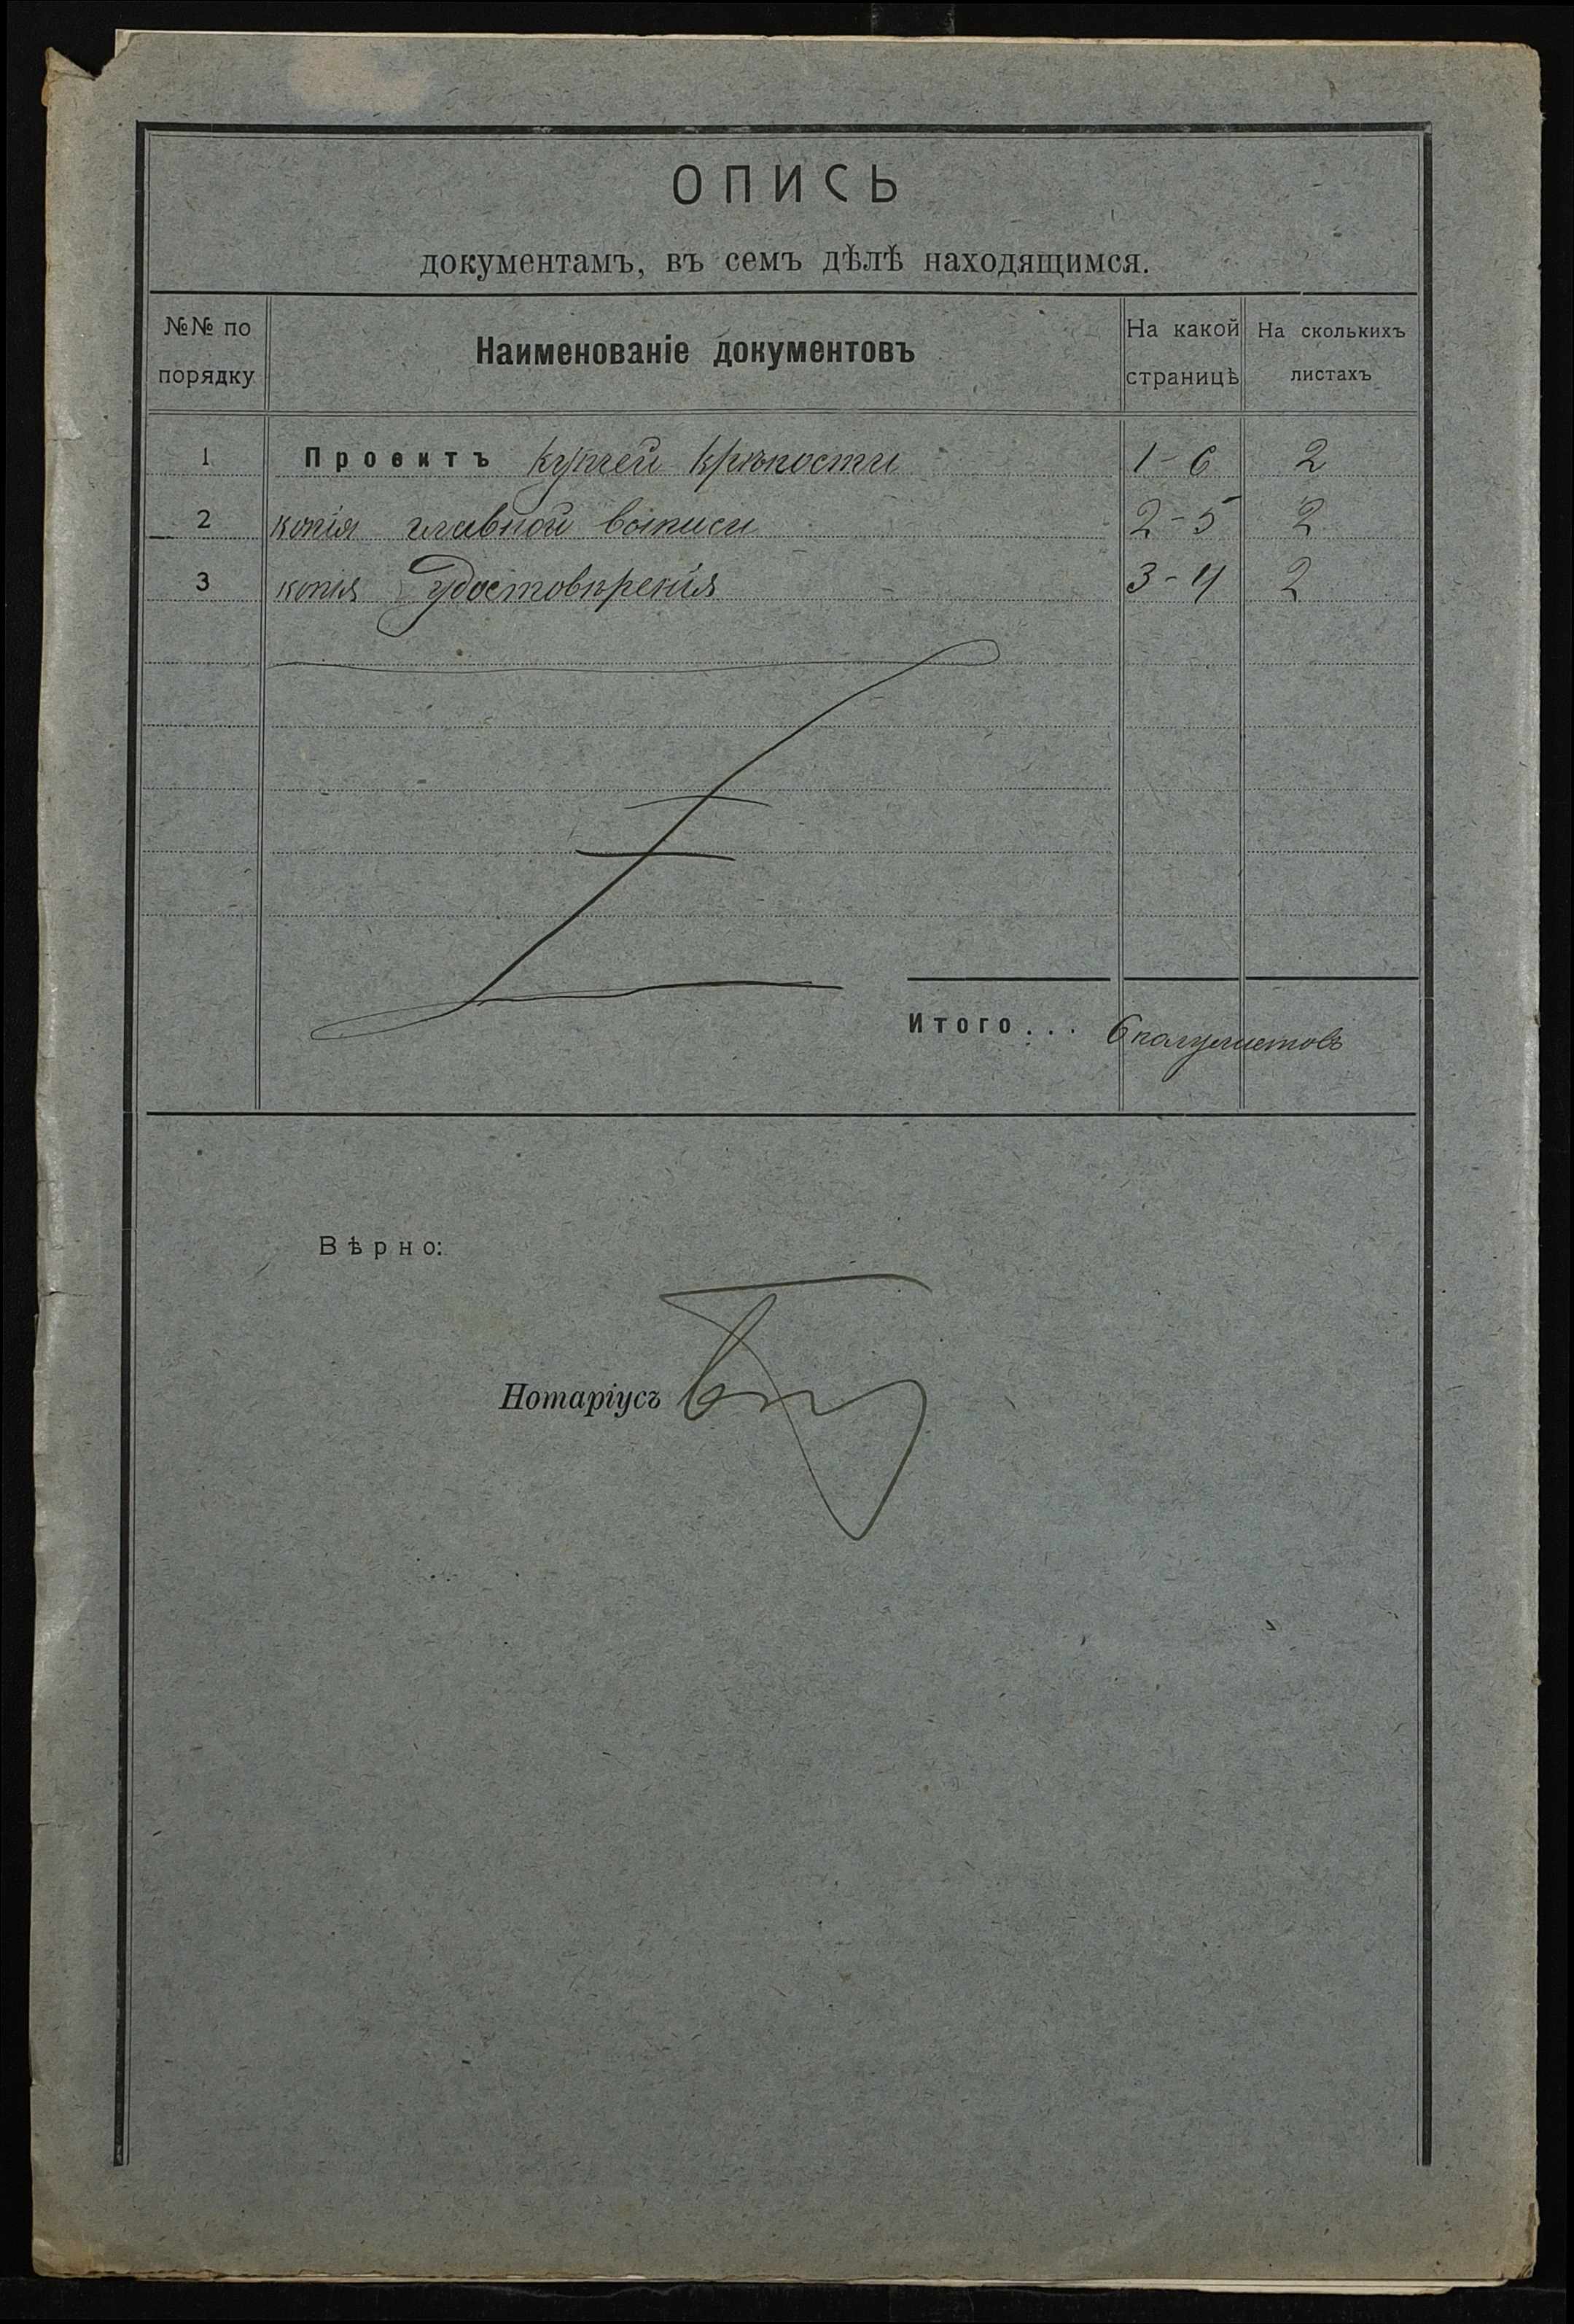 ОПИСЬ
документамъ, въ семъ дѣлѣ находящимся.
№№ по порядку
Наименованіе документовъ
На какой страницѣ
На сколькихъ листахъ
1 Проектъ купчей крѣпости 1-6 2
2 копія главной выписи 2-5 2
3 копія удостовѣренія 3-4 2
Итого... 6 полулистовъ
Вѣрно:
Нотаріусъ